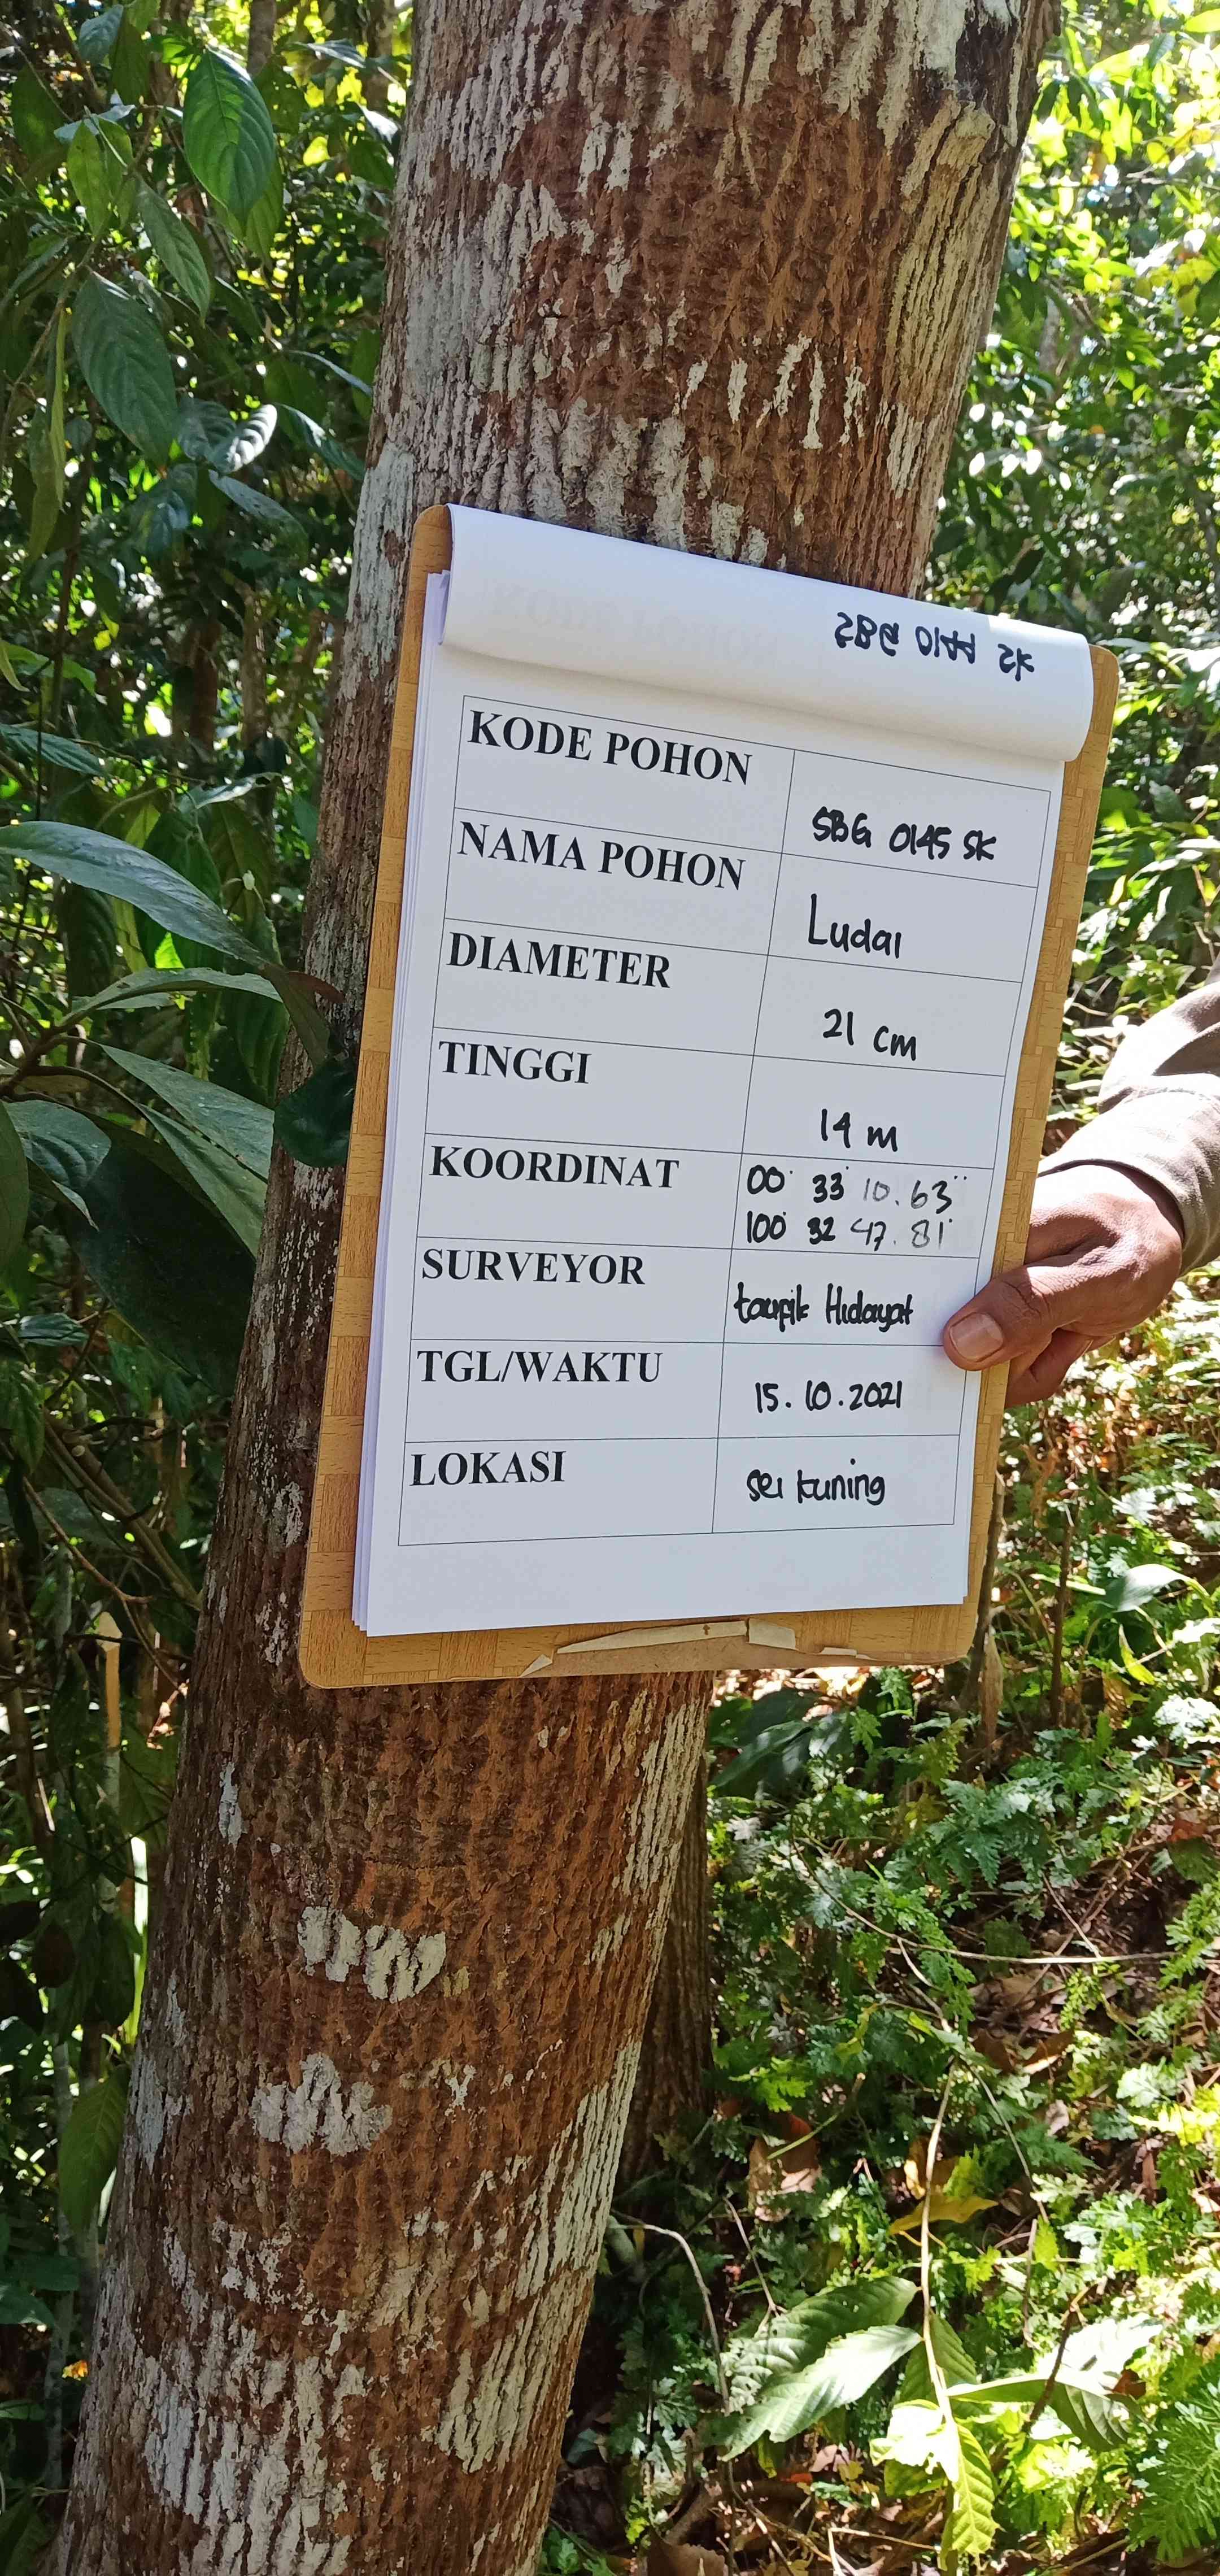 SBG 0144 SK
KODE POHON SBG 0145 SK
NAMA POHON Ludai
DIAMETER 21 cm
TINGGI 14 m
KOORDINAT 00° 33' 10.63"
100° 32' 47.81"
SURVEYOR taufik Hidayat
TGL/WAKTU 15.10.2021
LOKASI sei kuning